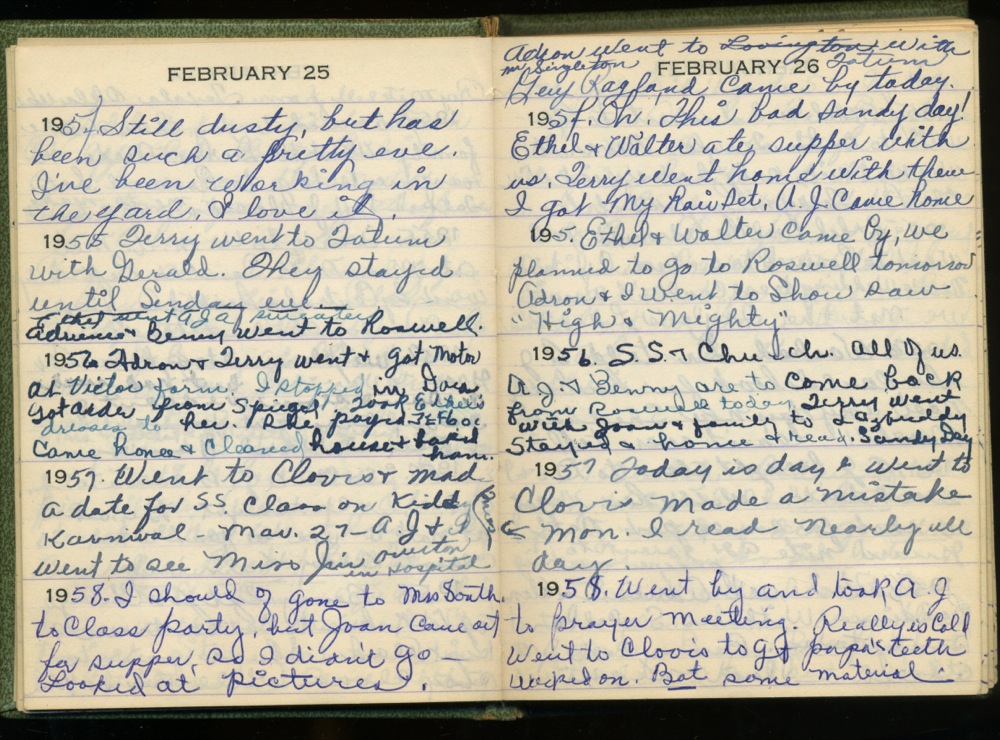 FEBRUARY 25
1954 Still dusty, but has
been such a pretty eve.
I've been working in
the yard. I love it.
1955 Terry went to Tatum
with Gerald. They stayed
until Sunday eve.
Adrience & Benny went to Roswell.
1956 Adron & Terry went & got Motor
at Victor farm. I stopped in, Dora
got order from Spiegel, Took Ethel's
dresses to her. She payed
Came home & Cleaned house & baked
ham.
1957. Went to Clovis & mad
a date for S.S. Class on Kidd
Karnival - Mar. 27 - A.J. & I
went to see Miss Jim Owston
in Hospital
1958. I should of gone to Mrs South.
to Class party, but Joan came out
for supper, so I didn't go -
Looked at pictures.
Adron went to Lovington with
Mr Singleton Tatum
FEBRUARY 26
Guy Ragland Came by today.
1954. Oh. This bad sandy day!
Ethel & Walter ate supper with
us. Terry went home with them
I got My Hair Set. A.J. Came home
195. Ethel & Walter came by, we
planned to go to Roswell tomorrow
Adron & I went to Show saw
"High & Mighty"
1956. S.S. & Church. All of us.
A J. & Benny are to come back
from Roswell today. Terry went
with Joan & family to Lazbuddy
Stayed home & read. Sandy Day
1957 Today is day I went to
Clovis Made a mistake
Mon. I read nearly all
day.
1958. Went by and took A.J
to prayer meeting. Really is Cold
Went to Clovis to get papa's teeth
worked on. Bot some material.